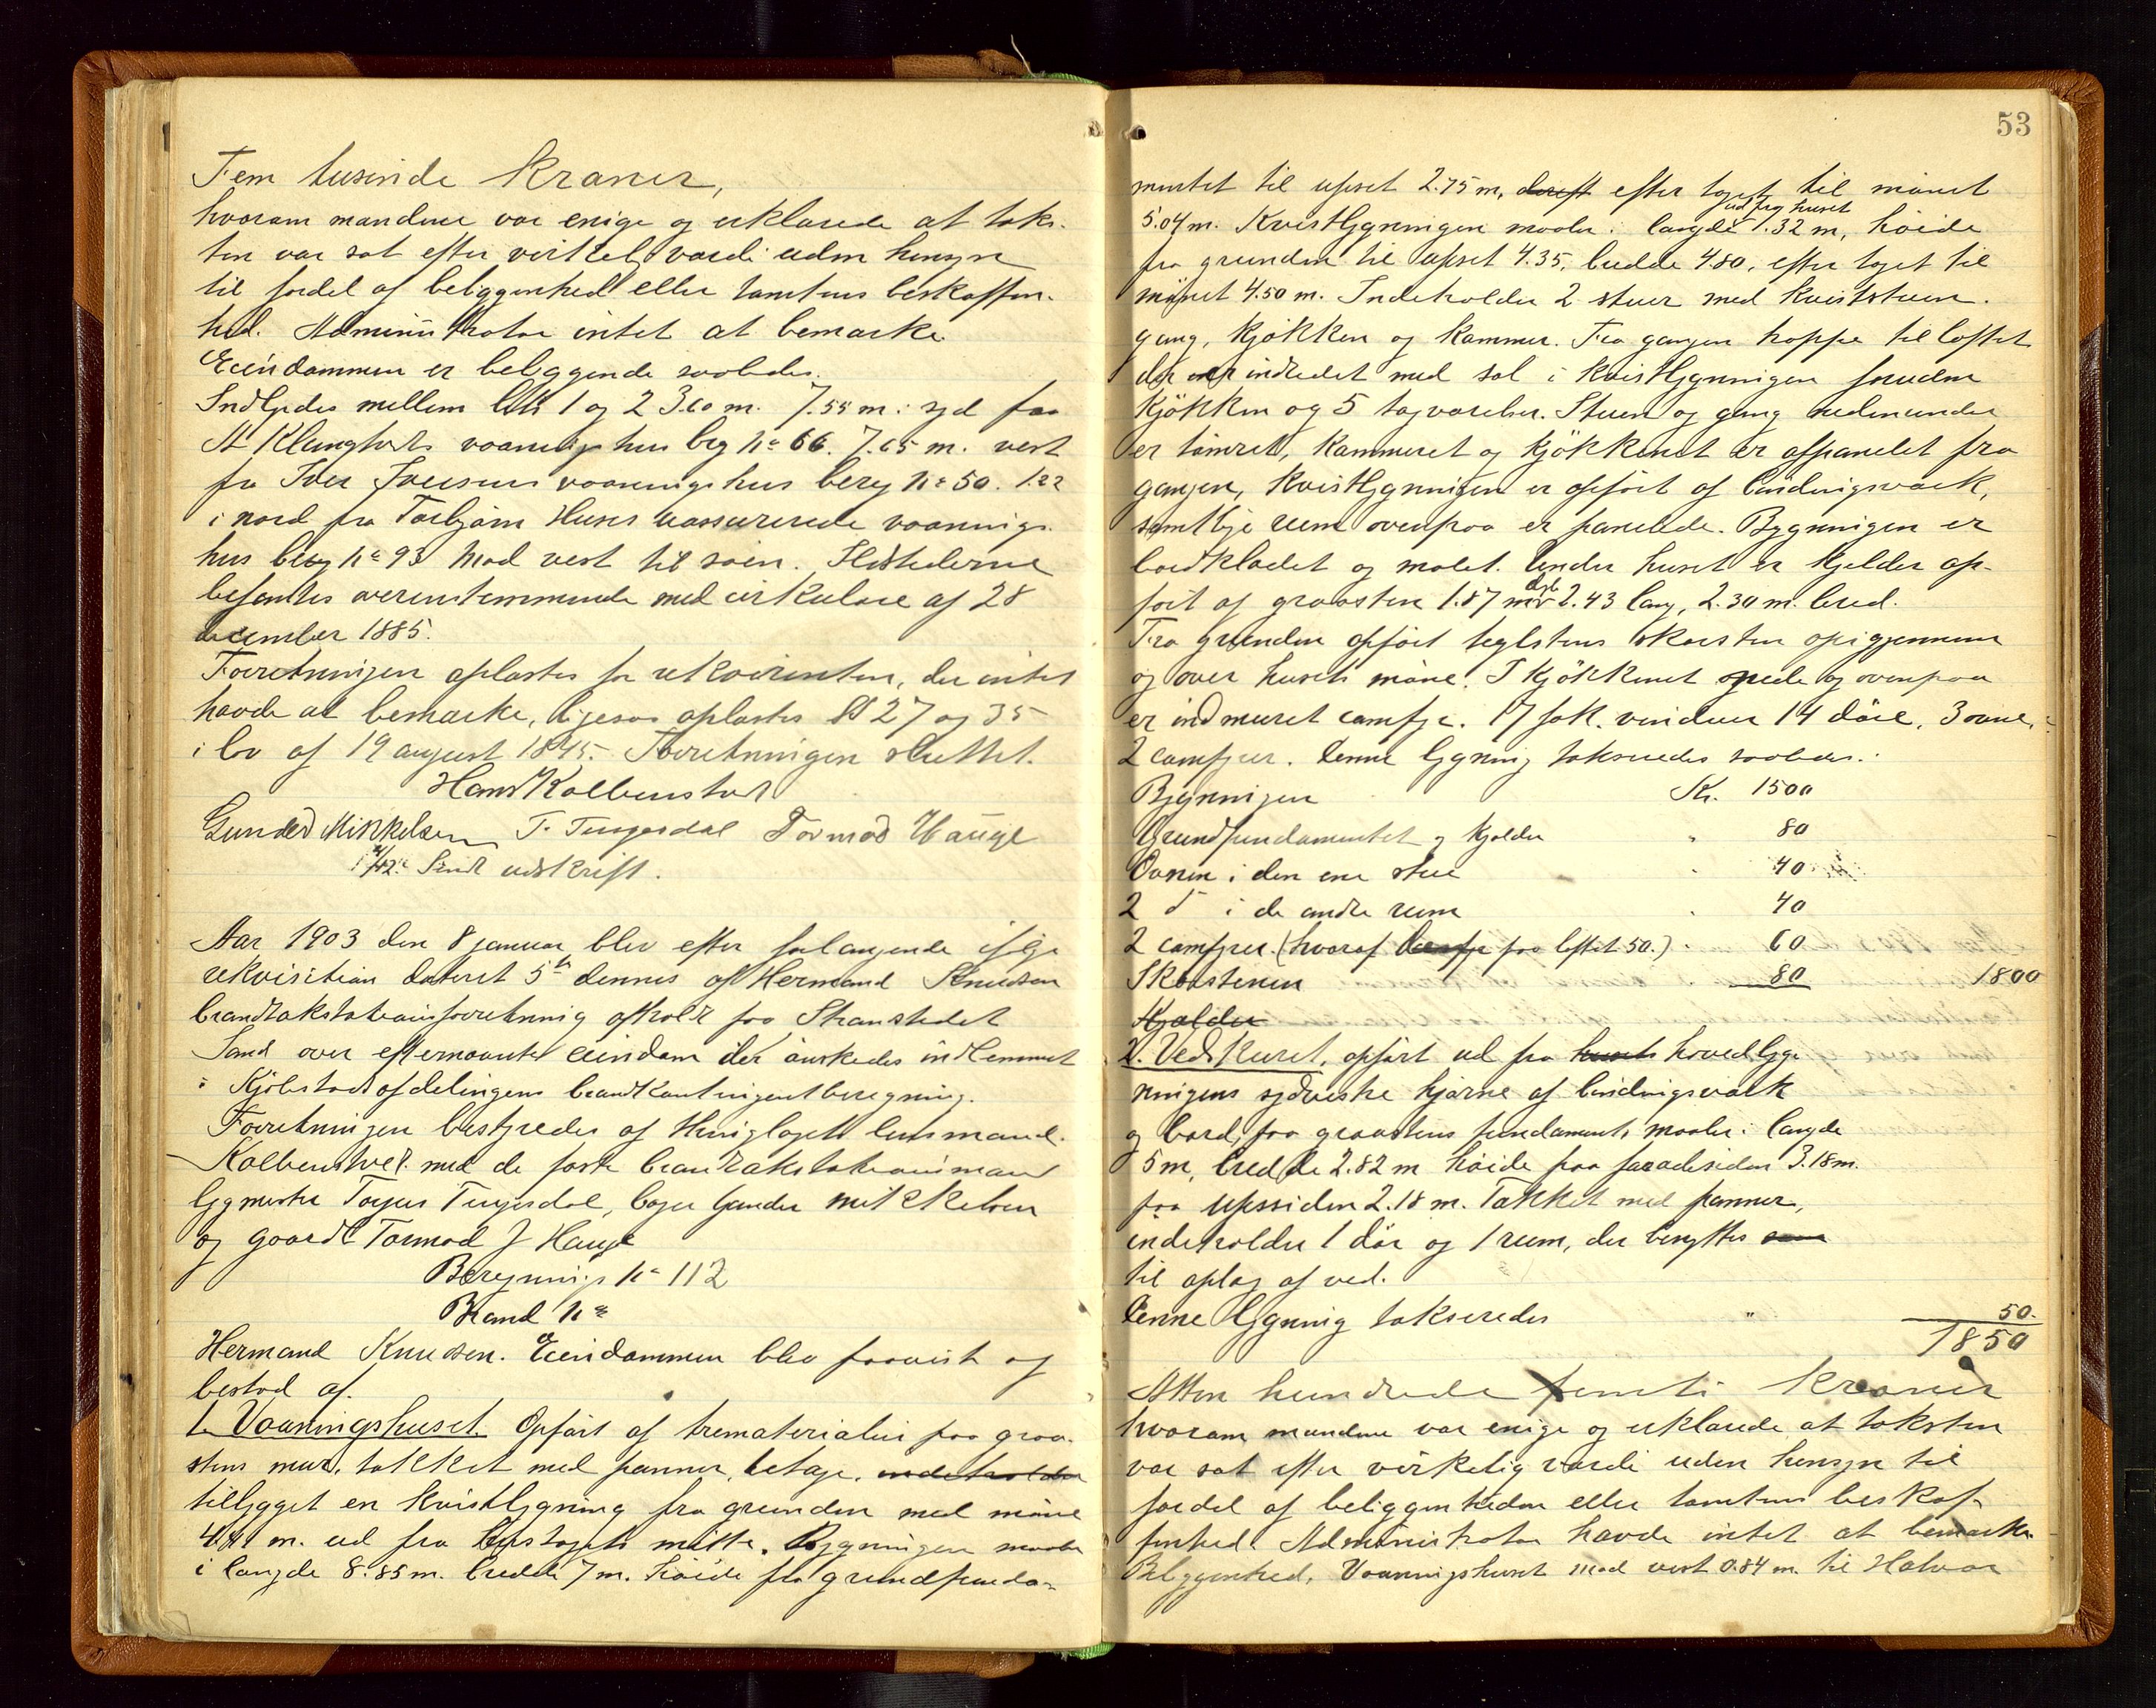 Fem tusinde Kroner,
hvorom mændene var enige og erklærede at tak-
sten var sat efter virkelig værdi uden hensyn
til fordel af beliggenhed eller tomtens beskaffen-
hed. Administrator intet at bemærke.
Eiendommen er beliggende saaledes.
Indbyrdes mellem litr 1 og 2 3.60 m. 7.55 m. syd fra
vaaningshus beg No 66. 7.65 m. vest
fra Iver Iversens vaaningshus bereg No 50. 1.22
i nord fra Torbjørn Huses uassurerede vaanings-
hus bereg No 93 Mod vest til søen. Ildstederne
befandtes overensstemmende med cirkulære af 28
december 1885.
Forretningen oplæstes for rekvirenten, der intet
havde at bemærke, ligesaa oplæstes §§ 27 og 35
i lov af 19 august 1845. Forretningen sluttet.
Hans Kolbenstvedt
Gunder Mikkelsen T. Tengesdal Tormod Hauge
Sendt udskrift.
Aar 1903 den 8 januar blev efter forlangende ifølge
rekvisition dateret 5te dennes af Hermand Knudsen
brandtakstationsforretning afholdt paa Strandstedet
Sand over efternævnte eiendom der ønskedes indlemmet
i Kjøbstadsafdelingens brandkontingentberegning.
Forretningen bestyredes af thinglagets lensmand
Kolbenstvedt med de faste brandtakstationsmænd
bygmester Torger Tengesdal, bager Gunder Mikkelsen
og gaardb Tormod J Hauge
Beregnings No 112
Brand No
Hermand Knudsen. Eiendommen blev paavist og
bestod af.
1. Vaaningshuset. Opført af trematerialier paa graa-
stens mur, takket med panner, 1 etage, indeholder
tilbygget en kvistbygning fra grunden med møne
m. ud fra hustagets midte. Bygningen maaler
i længde 8.85 m. bredde 7 m. høide fra grundfunda-
53
mentet til upset 2.75 m, efter taget til mønet
ud fra huset
5.04 m. Kvistbygningen maaler: længde 1.32 m, høide
fra grunden til upset 4.35, bredde 4.80, efter taget til
mønet 4.50 m. Indeholder 2 stuer med kviststuen.
gang, kjøkken og kammer. Fra gangen trappe til loftet
der er indredet med sal i kvistbygningen foruden
kjøkken og 5 tagværelser. Stuen og gang nedenunder
er tømret, kammeret og kjøkkenet er afpanelet fra
gangen, kvistbygningen er opført af bindingsværk,
samtlige rum ovenpaa er panelede. Bygningen er
bordklædet og malet. Under huset er kjelder op-
ført af graasten 1.87 m dyb 2.43 lang, 2.30 m. bred.
Fra grunden opført teglstens skorsten opigjennem
og over husets møne. I kjøkkenet nede og ovenpaa
er indmuret comfyr. 17 fak. vinduer 14 døre, 3 ovne,
2 comfyrer. Denne bygning takseredes saaledes:
Bygningen Kr. 1500
Grundfundamentet og kjelder " 80
Ovnen i den ene stue " 40
2 do i de andre rum " 40
2 comfyrer (hvoraf paa loftet 50.) " 60
Skorstenen 80 1800
Kjelder
2. Vedskuret, opført ud fra husets hovedbyg-
ningens sydvestre hjørne af bindingsværk
og bord, paa graastens fundament, maaler: længde
5 m, bredde 2.82 m høide paa façadesiden 3.18 m.
paa upssiden 2.18 m. Takket med panner,
indeholder 1 dør og 1 rum, der benyttes som
til oplag af ved.
Denne bygning takseredes " 50.
1850
Atten hundrede femti Kroner
hvorom mændene var enige og erklærede at taksten
var sat efter virkelig værdi uden hensyn til
fordel af beliggenheden eller tomtens beskaf-
fenhed. Administrator havde intet at bemærke.
Beliggenhed, Vaaningshuset mod vest 0.84 m. til Halvor